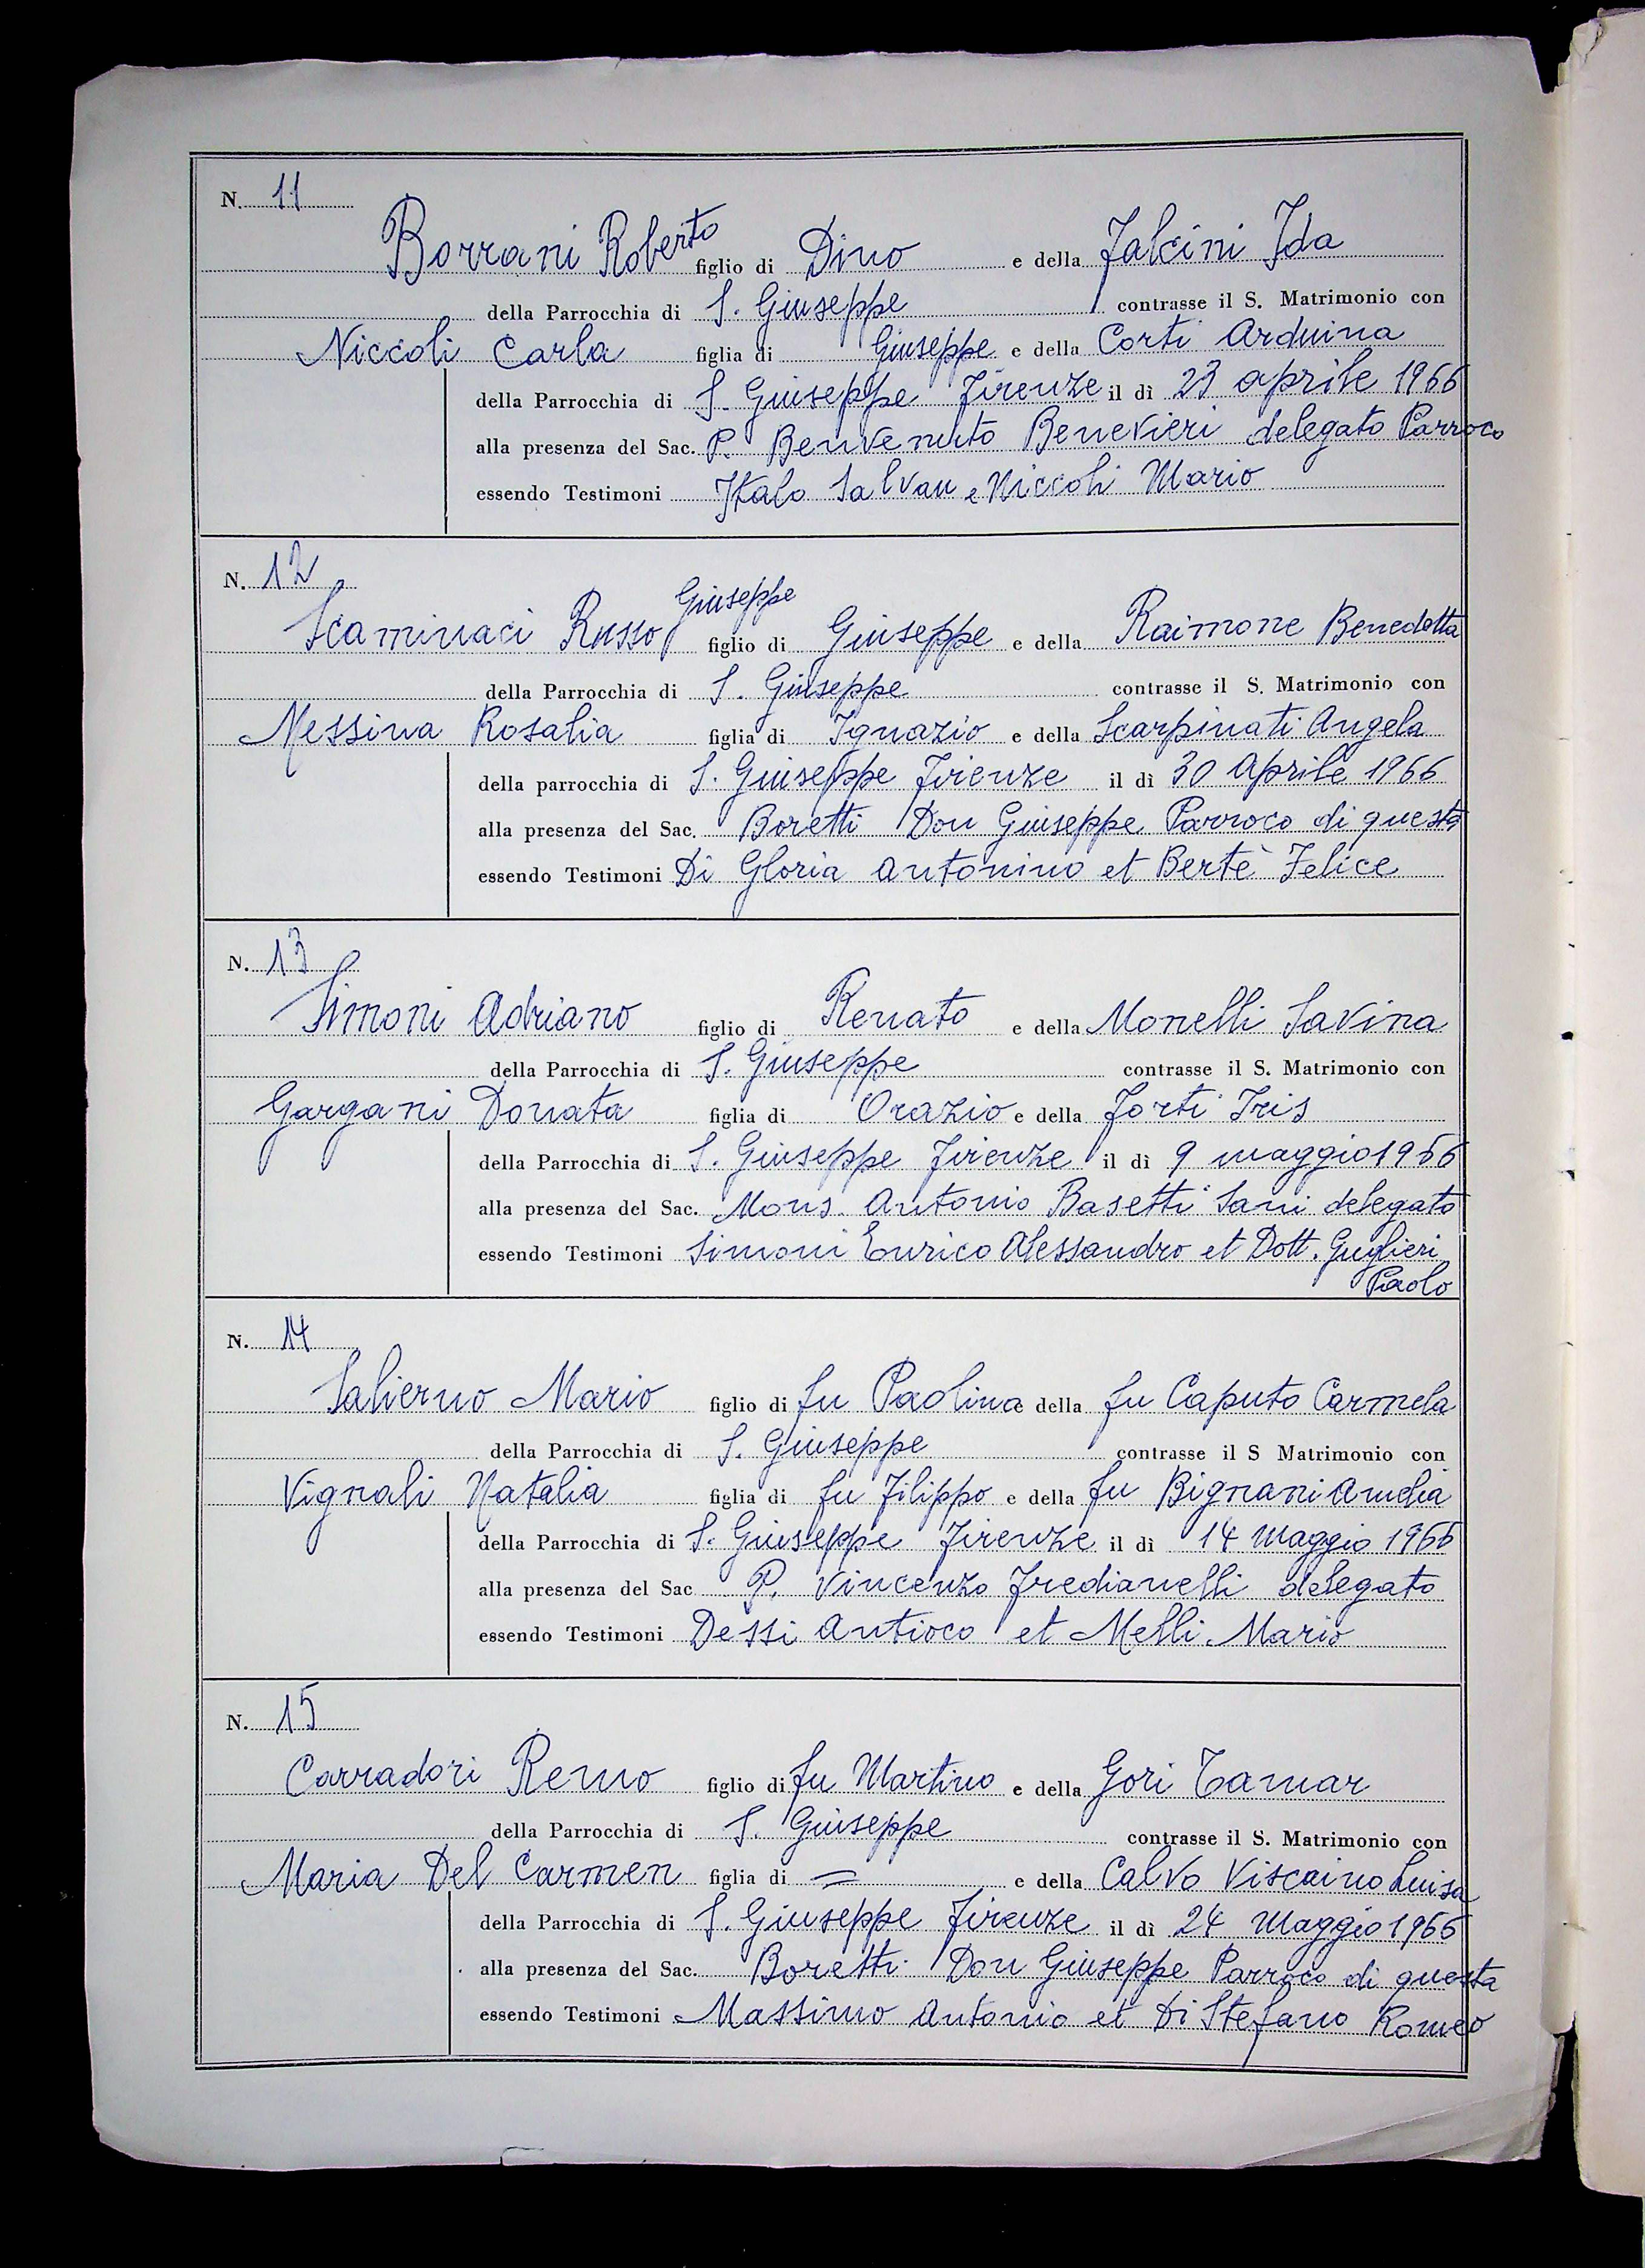 N. 11
Borrani Roberto figlio di Dino e della Falcini Ida
della Parrocchia di S. Giuseppe contrasse il S. Matrimonio con
Niccoli Carla figlia di Giuseppe e della Corti Arduina
della Parrocchia di S. Giuseppe Firenze il dì 23 aprile 1966
alla presenza del Sac. P. Benvenuto Benevieri delegato Parroco
essendo Testimoni Italo Salvau e Niccoli Mario
N. 12
Scaminaci Russo Giuseppe figlio di Giuseppe e della Raimone Benedetta
della Parrocchia di S. Giuseppe contrasse il S. Matrimonio con
Messina Rosalia figlia di Ignazio e della Scarpinati Angela
della parrocchia di S. Giuseppe Firenze il dì 30 Aprile 1966
alla presenza del Sac. Boretti Don Giuseppe Parroco di questa
essendo Testimoni Di Gloria Antonino et Bertè Felice
N. 13
Simoni Adriano figlio di Renato e della Monelli Savina
della Parrocchia di S. Giuseppe contrasse il S. Matrimonio con
Gargani Donata figlia di Orazio e della Forti Iris
della Parrocchia di S. Giuseppe Firenze il dì 9 maggio 1966
alla presenza del Sac. Mons. Antonio Basetti Sani delegato
essendo Testimoni Simoni Enrico Alessandro et Dott. Guglieri
Paolo
N. 14
Salierno Mario figlio di fu Paolino e della fu Caputo Carmela
della Parrocchia di S. Giuseppe contrasse il S Matrimonio con
Vignali Natalia figlia di fu Filippo e della fu Bignani Amelia
della Parrocchia di S. Giuseppe Firenze il dì 14 Maggio 1966
alla presenza del Sac P. Vincenzo Fredianelli delegato
essendo Testimoni Dessi Antioco et Melli Mario
N. 15
Carradori Remo figlio di fu Martino e della Gori Tamar
della Parrocchia di S. Giuseppe contrasse il S. Matrimonio con
Maria Del Carmen figlia di = e della Calvo Viscaino Luisa
della Parrocchia di S. Giuseppe Firenze il dì 24 Maggio 1966
alla presenza del Sac. Boretti Don Giuseppe Parroco di questa
essendo Testimoni Massimo Antonio et Di Stefano Romeo